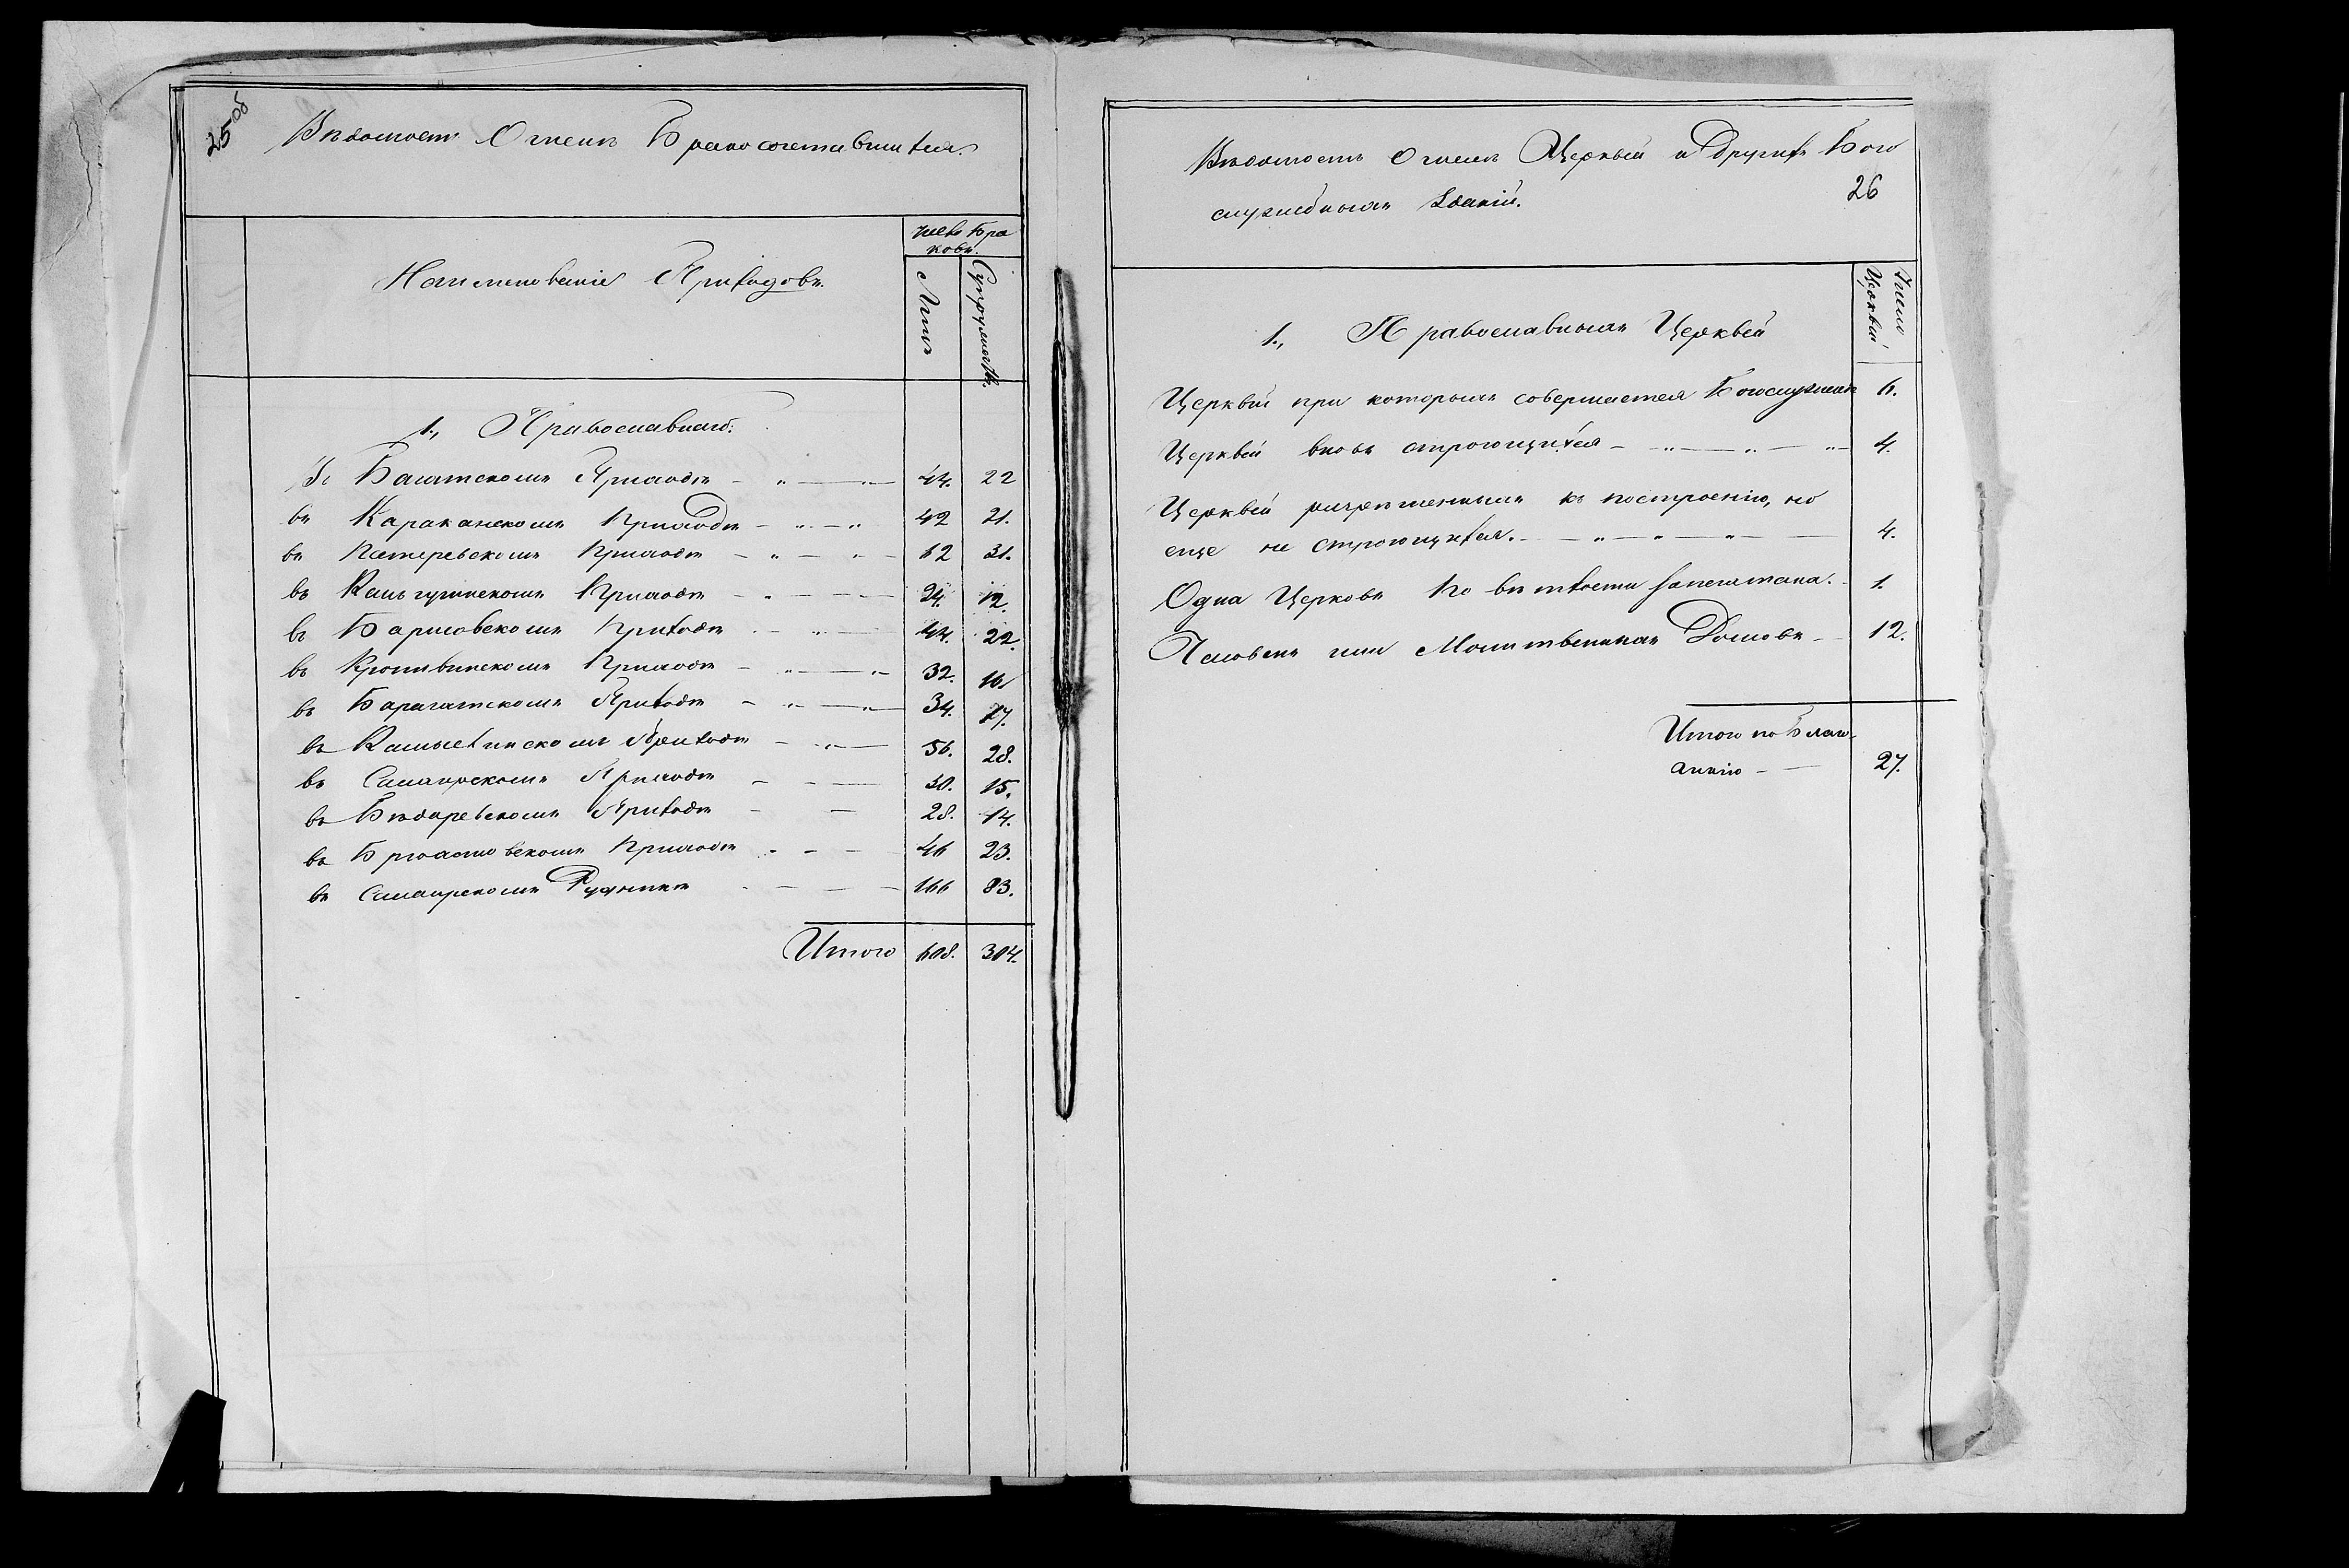 25 об
Вѣдомость О числѣ Бракосочетавшихся.
число Бра
ковъ.
Наименованіе Приходовъ.
Лицъ
Супружествъ.
1., Православнаго:
Въ Багатскомъ Приходѣ - " — " — 44. 22
въ Караканскомъ Приходѣ - " - " 42 21.
въ Пестеревскомъ Приходѣ - " — " - 62 31.
въ Приходѣ - " - — - 24. 12.
въ Барисовскомъ Приходѣ - " — 44. 22.
въ Кропивинскомъ Приходѣ - " — " - 32. 16.
въ Барагатскомъ Приходѣ - " — " — 34. 17.
въ Камысинскомъ Приходѣ - " — 56. 28.
въ Салаирскомъ Приходѣ - - — 30. 15.
въ Бѣдаревскомъ Приходѣ - — 28. 14.
въ Брюхановскомъ Приходѣ - - — 46 23.
въ Салаирскомъ Рудникѣ - — — — 166 83.
Итого 608. 304.
Вѣдомость О числѣ Церквей и Другихъ Бого
26
служебныхъ Зданій.
Число
Церквей
1., Православныхъ Церквей
Церквей при которыхъ совершается Богослуженіе 6.
Церквей вновь строющихся - " — " — " — 4.
Церквей разрешенныхъ къ построенію, но
еще не строющихся. — " — " — " — 4.
Одна Церковь По ветхости Запечатана. - 1.
Часовень или Молитвенныхъ Домовъ — 12.
Итого по Благо-
чинію — — 27.